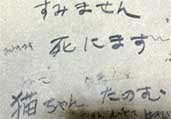 すみません
死にます
猫ちゃん たのむ